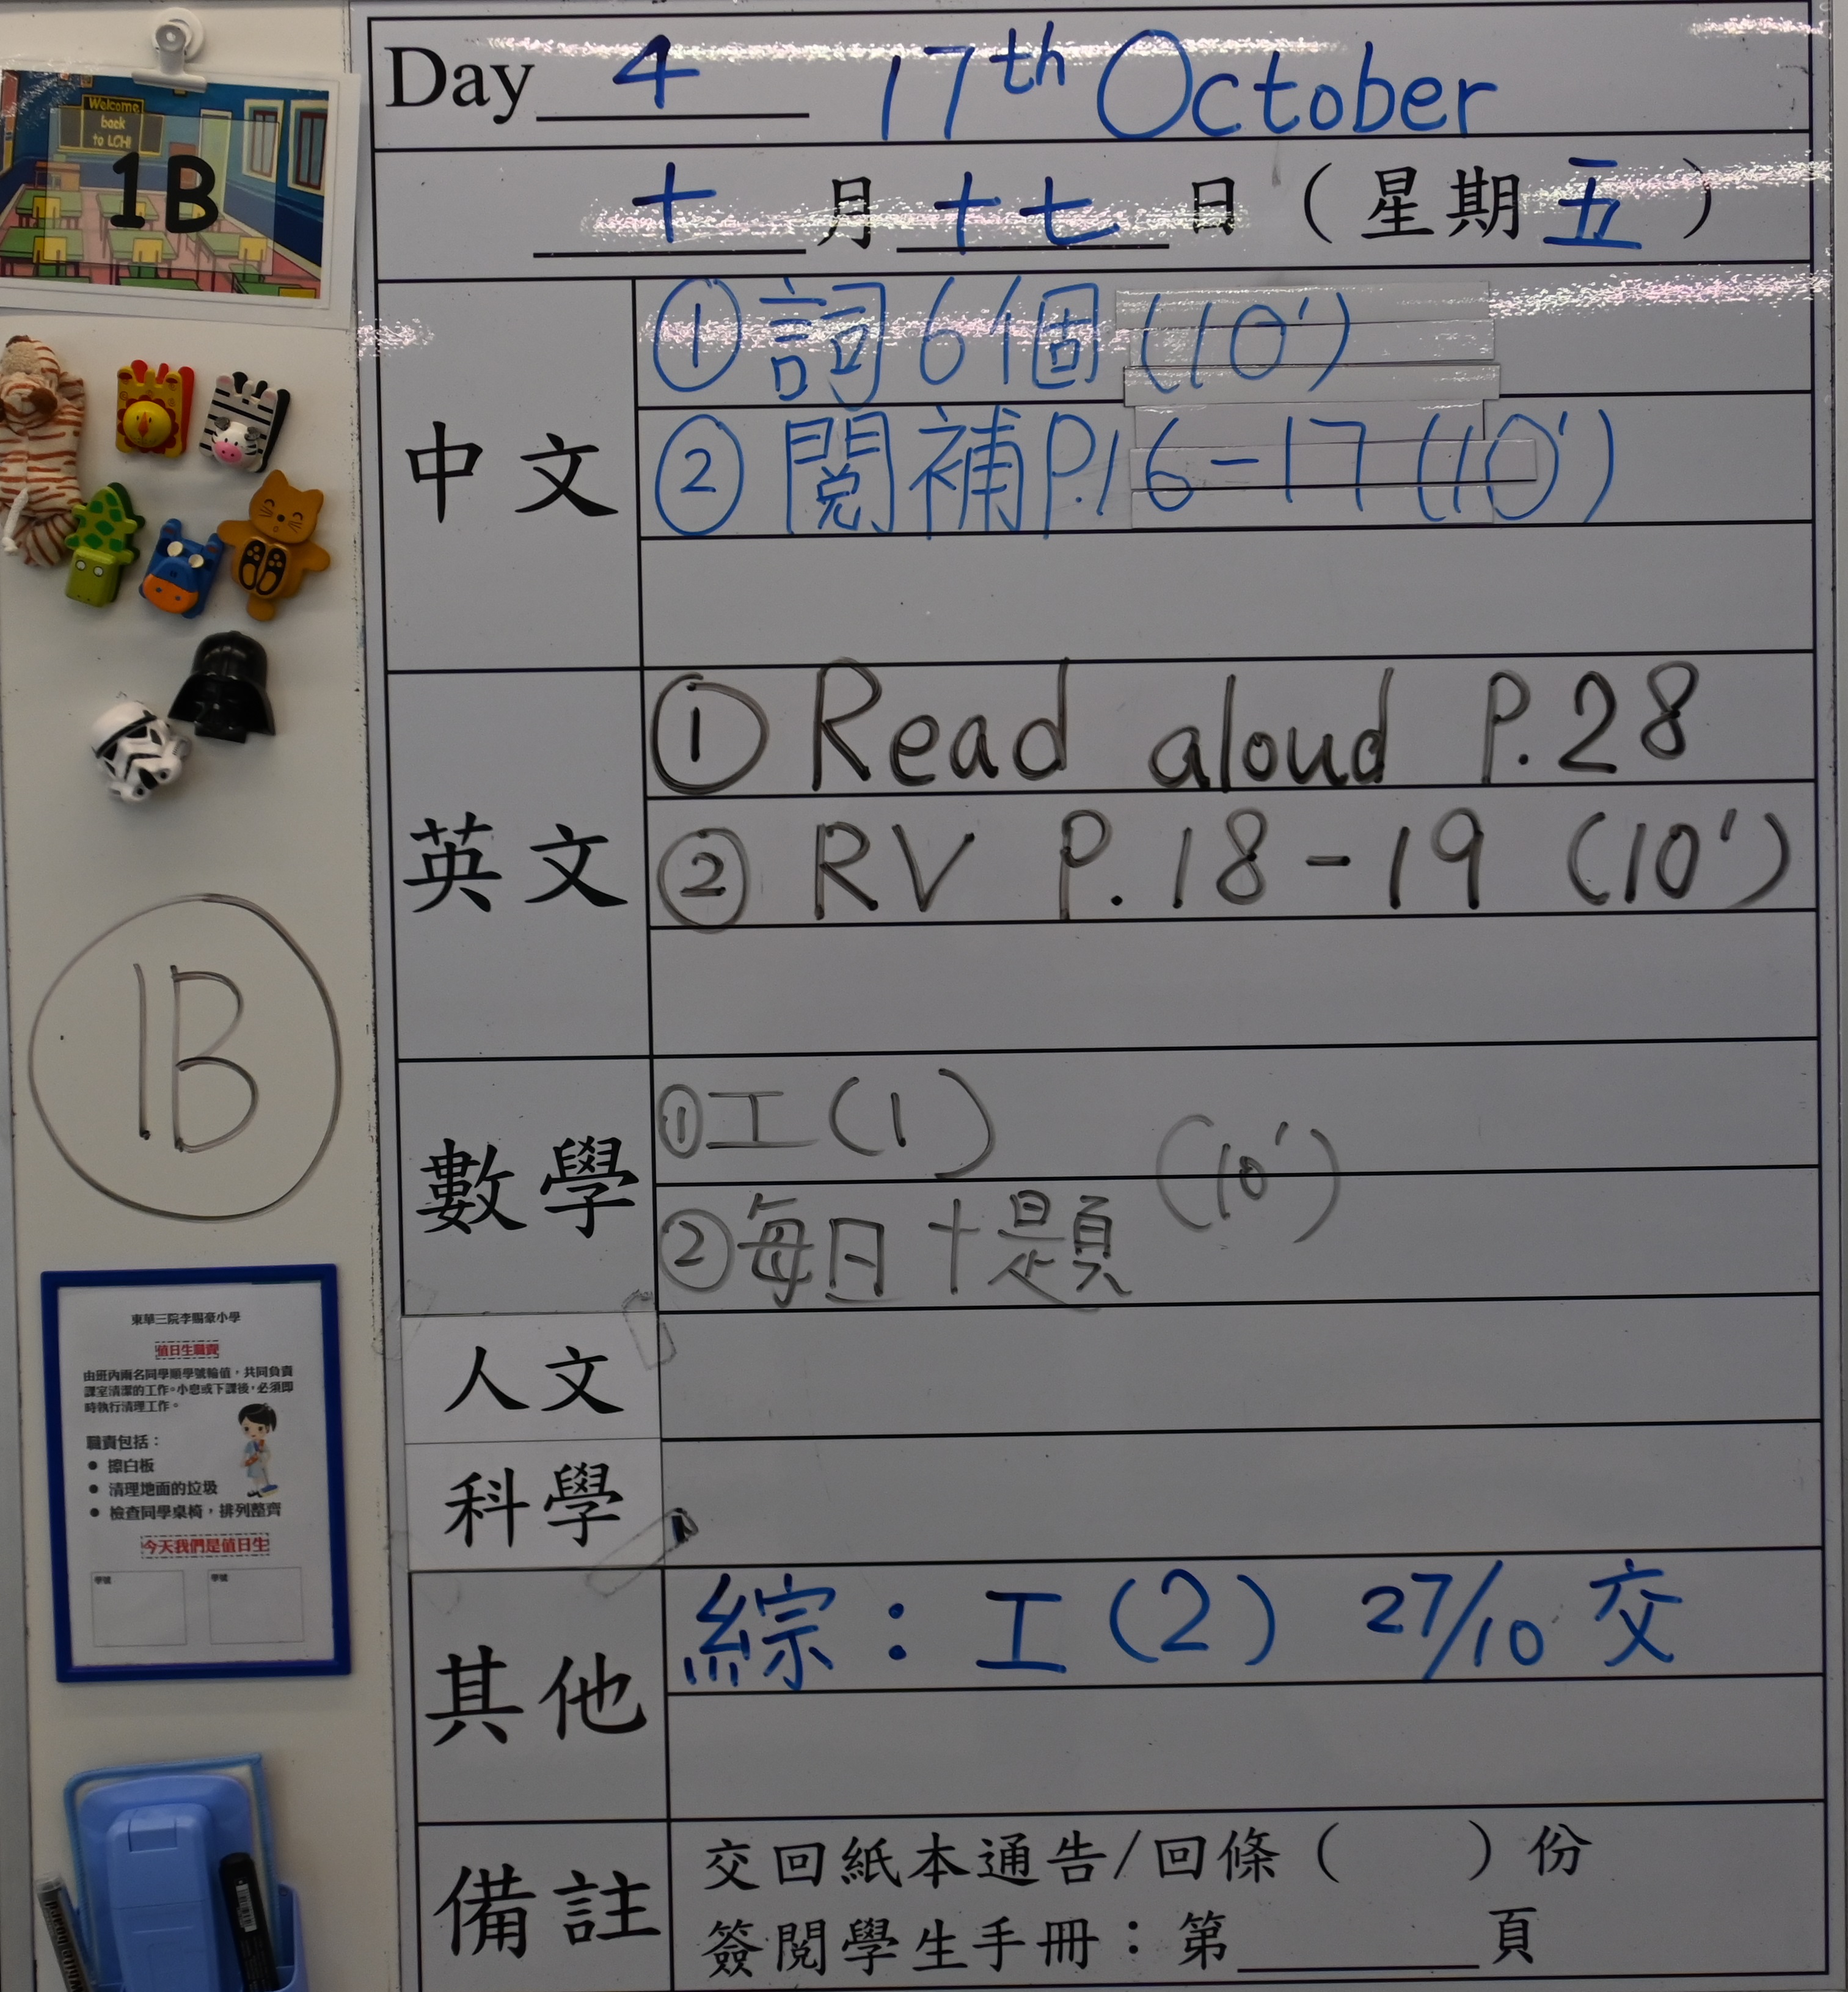 Day 4 17th October
十月十七日(星期五)
中文
①詞6個(10')
②閱補P.16-17(10')
英文
① Read aloud P.28
② RV P.18-19 (10')
數學
①工(1)
(10')
②每日十題
人文
科學
其他
綜:工(2) 27/10 交
備註
交回紙本通告/回條( )份
簽閱學生手冊:第____頁
Welcome
back
to LCH!
1B
1B
東華三院李賜豪小學
值日生職責
由班內兩名同學順學號輪值,共同負責
課室清潔的工作。小息或下課後,必須即
時執行清理工作。
職責包括:
● 擦白板
● 清理地面的垃圾
● 檢查同學桌椅,排列整齊
今天我們是值日生
學號 學號